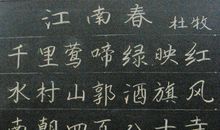 江南春 杜牧
千里莺啼绿映红
水村山郭酒旗风
南朝四百八十寺